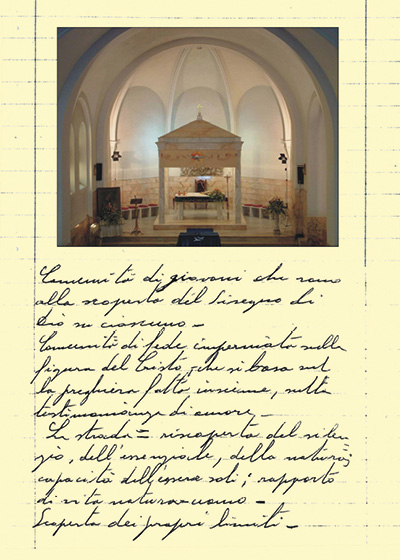 Comunità di giovani che sono
alla scoperta del disegno di
Dio su ciascuno -
Comunità di fede imperniata sulla
figura del Cristo, che si basa sul
la preghiera fatta insieme, sulla
testimonianza di amore. -
La strada = riscoperta del silen
zio, dell'essenziale, della natura,
capacità dell'essere soli; rapporto
di vita natura-uomo -
Scoperta dei propri limiti -